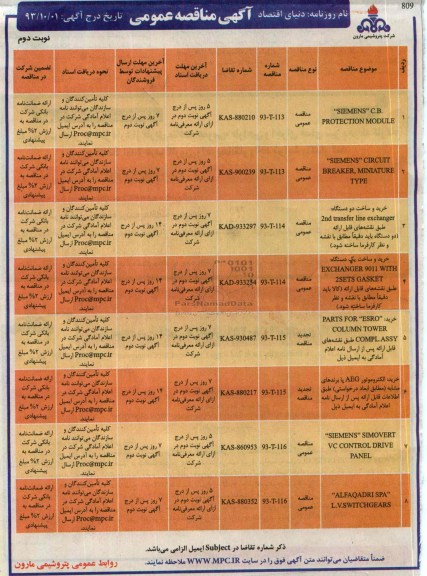 809
نام روزنامه: دنیای اقتصاد
آگهی مناقصه عمومی
تاریخ درج آگهی: ۹۳/۱۰/۰۱
شرکت پتروشیمی مارون
نوبت دوم
ردیف
موضوع مناقصه
نوع مناقصه
شماره مناقصه
شماره تقاضا
آخرین مهلت دریافت اسناد
آخرین مهلت ارسال پیشنهادات توسط فروشندگان
نحوه دریافت اسناد
تضمین شرکت در مناقصه
۱
"SIEMENS" C.B.
PROTECTION MODULE
مناقصه عمومی
93-T-113
KAS-880210
۵ روز پس از درج آگهی نوبت دوم در ازای ارائه معرفی‌نامه شرکت
۷ روز پس از درج آگهی نوبت دوم
کلیه تأمین‌کنندگان و سازندگان می‌توانند نامه اعلام آمادگی شرکت در مناقصه را به آدرس ایمیل Proc@mpc.ir ارسال نمایند.
ارائه ضمانتنامه بانکی شرکت در مناقصه به ارزش ۲% مبلغ پیشنهادی
۲
"SIEMENS" CIRCUIT
BREAKER, MINIATURE
TYPE
مناقصه عمومی
93-T-113
KAS-980239
۵ روز پس از درج آگهی نوبت دوم در ازای ارائه معرفی‌نامه شرکت
۷ روز پس از درج آگهی نوبت دوم
کلیه تأمین‌کنندگان و سازندگان می‌توانند نامه اعلام آمادگی شرکت در مناقصه را به آدرس ایمیل Proc@mpc.ir ارسال نمایند.
ارائه ضمانتنامه بانکی شرکت در مناقصه به ارزش ۲% مبلغ پیشنهادی
۳
خرید و ساخت دو دستگاه
2nd transfer line exchanger
طبق نقشه‌های قابل ارائه
(دو دستگاه باید دقیقاً مطابق با نقشه
و نظر کارفرما ساخته شود.)
مناقصه عمومی
93-T-114
KAD-933297
۷ روز پس از درج آگهی نوبت دوم در ازای ارائه معرفی‌نامه شرکت
۱۴ روز پس از درج آگهی نوبت دوم
کلیه تأمین‌کنندگان و سازندگان می‌توانند نامه اعلام آمادگی شرکت در مناقصه را به آدرس ایمیل Proc@mpc.ir ارسال نمایند.
ارائه ضمانتنامه بانکی شرکت در مناقصه به ارزش ۲% مبلغ پیشنهادی
۴
خرید و ساخت یک دستگاه
EXCHANGER 9011 WITH
2SETS GASKET
دقیقاً مطابق با نقشه و نظر
کارفرما ساخته شود.)
مناقصه عمومی
93-T-114
KAD-933254
۷ روز پس از درج آگهی نوبت دوم در ازای ارائه معرفی‌نامه شرکت
۱۴ روز پس از درج آگهی نوبت دوم
کلیه تأمین‌کنندگان و سازندگان می‌توانند نامه اعلام آمادگی شرکت در مناقصه را به آدرس ایمیل Proc@mpc.ir ارسال نمایند.
ارائه ضمانتنامه بانکی شرکت در مناقصه به ارزش ۲% مبلغ پیشنهادی
۵
خرید: PARTS FOR "ESRO"
COLUMN TOWER
COMPL.ASSY طبق نقشه‌های
قابل ارائه پس از ارسال نامه اعلام
آمادگی به ایمیل ذیل
تجدید مناقصه عمومی
93-T-115
KAS-930487
۷ روز پس از درج آگهی نوبت دوم در ازای ارائه معرفی‌نامه شرکت
۱۴ روز پس از درج آگهی نوبت دوم
کلیه تأمین‌کنندگان و سازندگان می‌توانند نامه اعلام آمادگی شرکت در مناقصه را به آدرس ایمیل Proc@mpc.ir ارسال نمایند.
ارائه ضمانتنامه بانکی شرکت در مناقصه به ارزش ۲% مبلغ پیشنهادی
۶
خرید: الکتروموتور AEG یا برندهای
مشابه (مطابق ابعاد درخواستی) طبق
اطلاعات قابل ارائه پس از ارسال نامه
اعلام آمادگی به ایمیل ذیل
تجدید مناقصه عمومی
93-T-115
KAS-880217
۷ روز پس از درج آگهی نوبت دوم در ازای ارائه معرفی‌نامه شرکت
۱۴ روز پس از درج آگهی نوبت دوم
کلیه تأمین‌کنندگان و سازندگان می‌توانند نامه اعلام آمادگی شرکت در مناقصه را به آدرس ایمیل Proc@mpc.ir ارسال نمایند.
ارائه ضمانتنامه بانکی شرکت در مناقصه به ارزش ۲% مبلغ پیشنهادی
۷
"SIEMENS" SIMOVERT
VC CONTROL DRIVE
PANEL
مناقصه عمومی
93-T-116
KAS-860953
۵ روز پس از درج آگهی نوبت دوم در ازای ارائه معرفی‌نامه شرکت
۷ روز پس از درج آگهی نوبت دوم
کلیه تأمین‌کنندگان و سازندگان می‌توانند نامه اعلام آمادگی شرکت در مناقصه را به آدرس ایمیل Proc@mpc.ir ارسال نمایند.
ارائه ضمانتنامه بانکی شرکت در مناقصه به ارزش ۲% مبلغ پیشنهادی
۸
"ALFAQADRI SPA"
L.V.SWITCHGEARS
مناقصه عمومی
93-T-116
KAS-880352
۵ روز پس از درج آگهی نوبت دوم در ازای ارائه معرفی‌نامه شرکت
۷ روز پس از درج آگهی نوبت دوم
کلیه تأمین‌کنندگان و سازندگان می‌توانند نامه اعلام آمادگی شرکت در مناقصه را به آدرس ایمیل Proc@mpc.ir ارسال نمایند.
ارائه ضمانتنامه بانکی شرکت در مناقصه به ارزش ۲% مبلغ پیشنهادی
ذکر شماره تقاضا در Subject ایمیل الزامی می‌باشد.
ضمناً متقاضیان می‌توانند متن آگهی فوق را در سایت WWW.MPC.IR ملاحظه نمایند.
روابط عمومی پتروشیمی مارون